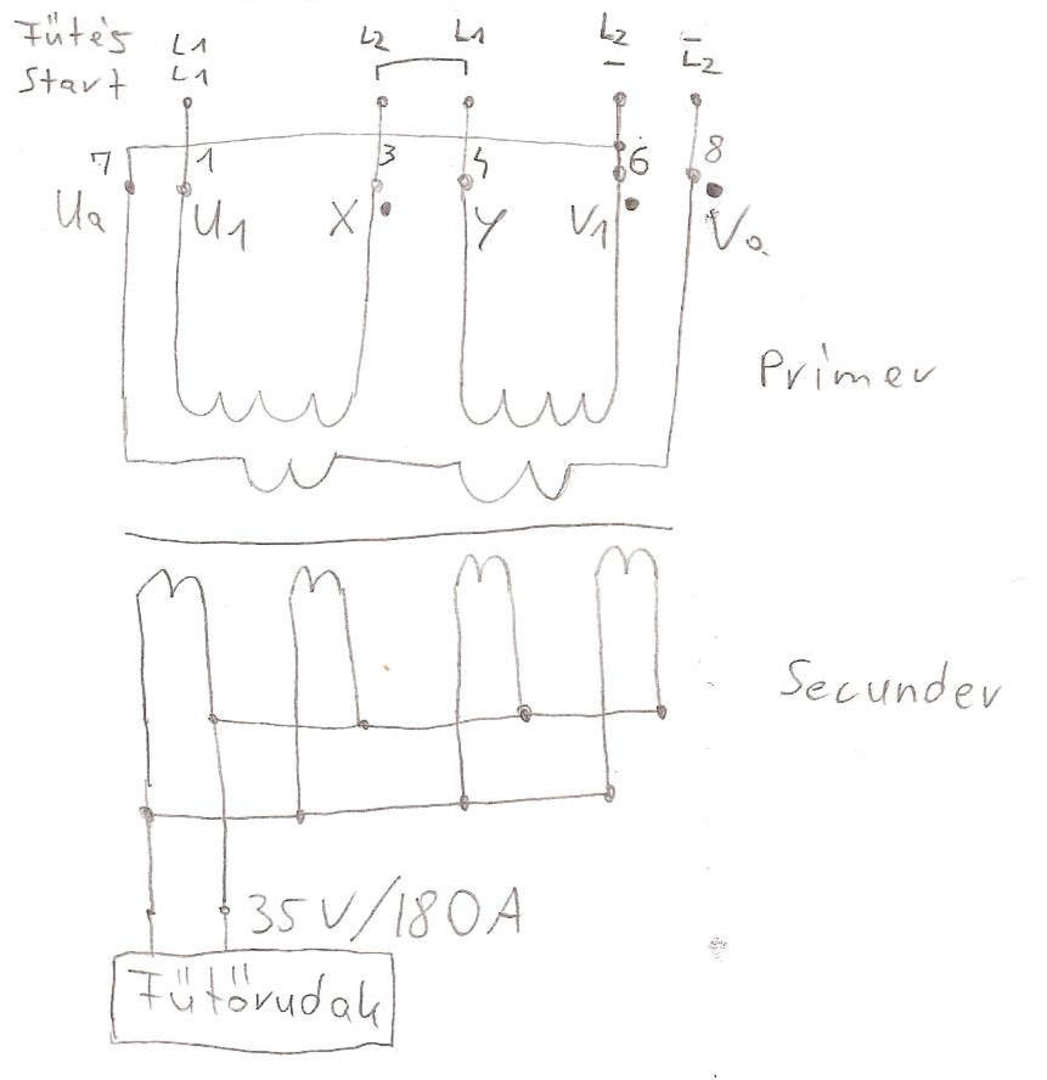 Fűtés L1 L2 L1 L2 –
Start L1 – L2
7 1 3 4 6 8
Ua U1 X Y V1 Va
Primer
Secunder
35V/180A
Fűtőrudak